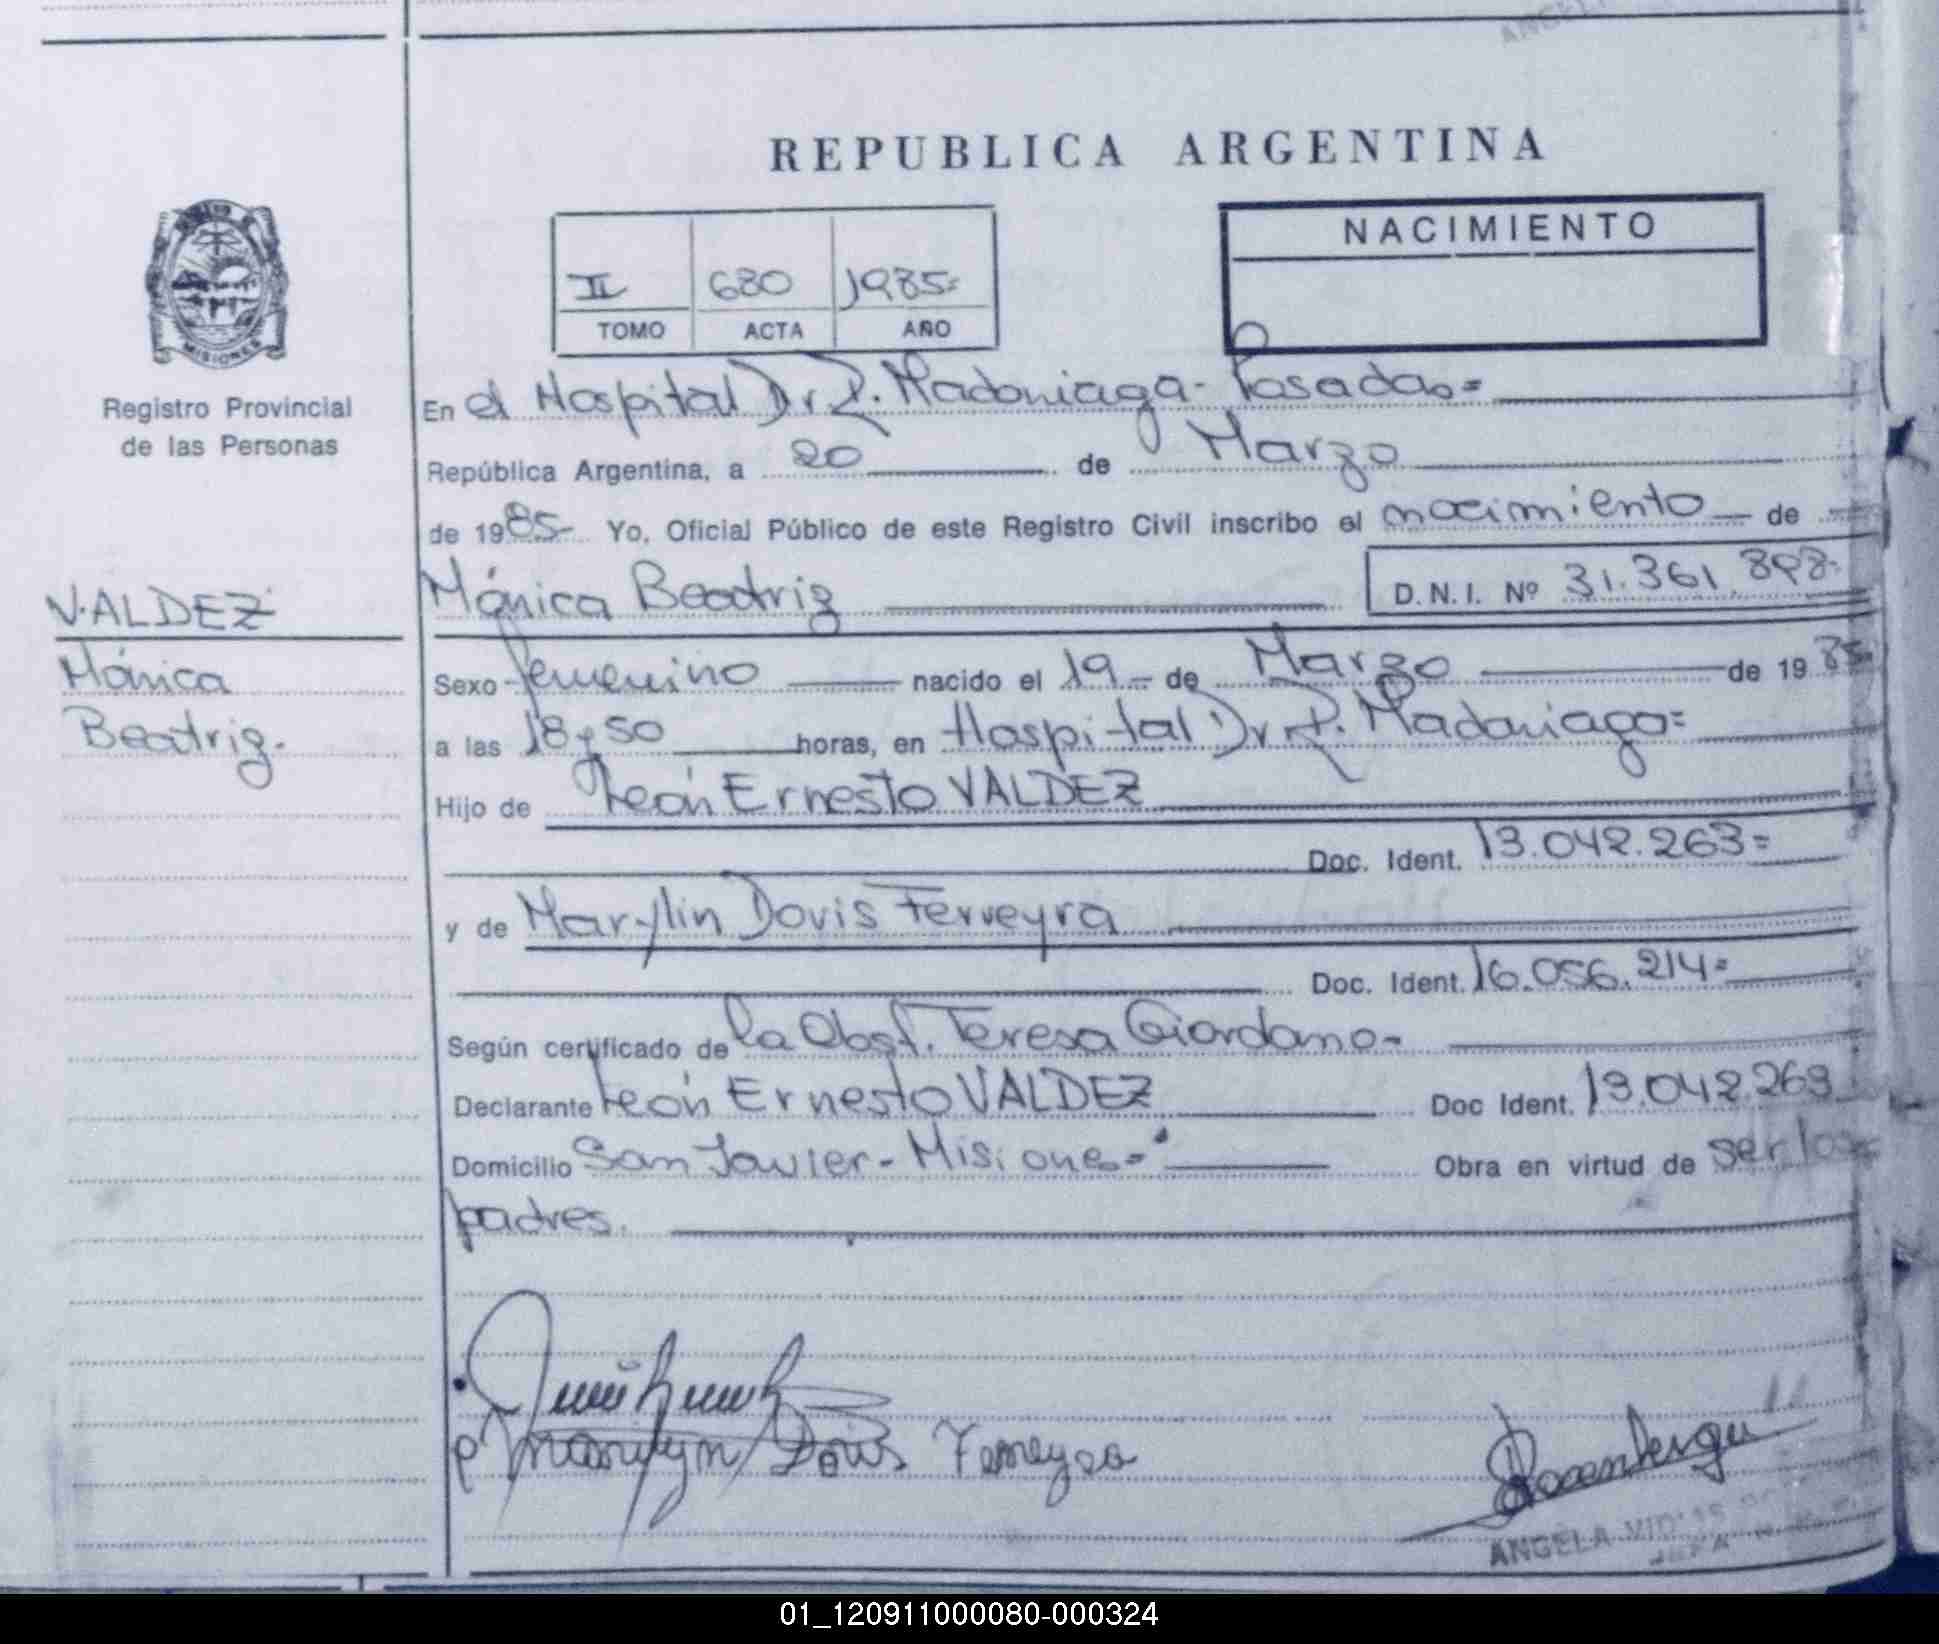 REPUBLICA ARGENTINA
NACIMIENTO
II 680 1985=
TOMO ACTA AÑO
MISIONES
Registro Provincial
de las Personas
En el Hospital Dr R. Madariaga - Posadas=
República Argentina, a 20 de Marzo
de 1985- Yo, Oficial Público de este Registro Civil inscribo el nacimiento de
Mónica Beatriz D.N.I. Nº 31.361.898-
VALDEZ
Mónica
Beatriz.
Sexo femenino nacido el 19 de Marzo de 1985
a las 18 y 50 horas, en Hospital Dr R. Madariaga=
Hijo de León Ernesto VALDEZ
Doc. Ident. 13.042.263=
y de Marylin Doris Ferreyra
Doc. Ident. 16.056.214=
Según certificado de la Obst. Teresa Giordano-
Declarante León Ernesto VALDEZ Doc Ident. 13.042.263
Domicilio San Javier - Misiones=
Obra en virtud de ser los
padres.
Marilyn Doris Ferreyra
ANGELA
JEFA
01_120911000080-000324